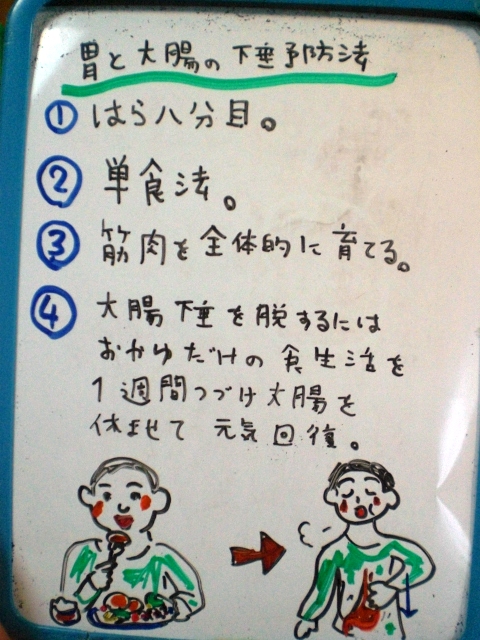 胃と大腸の下垂予防法
① はら八分目。
② 単食法。
③ 筋肉を全体的に育てる。
④ 大腸下垂を脱するには
おかゆだけの食生活を
1週間つづけ大腸を
休ませて元気回復。